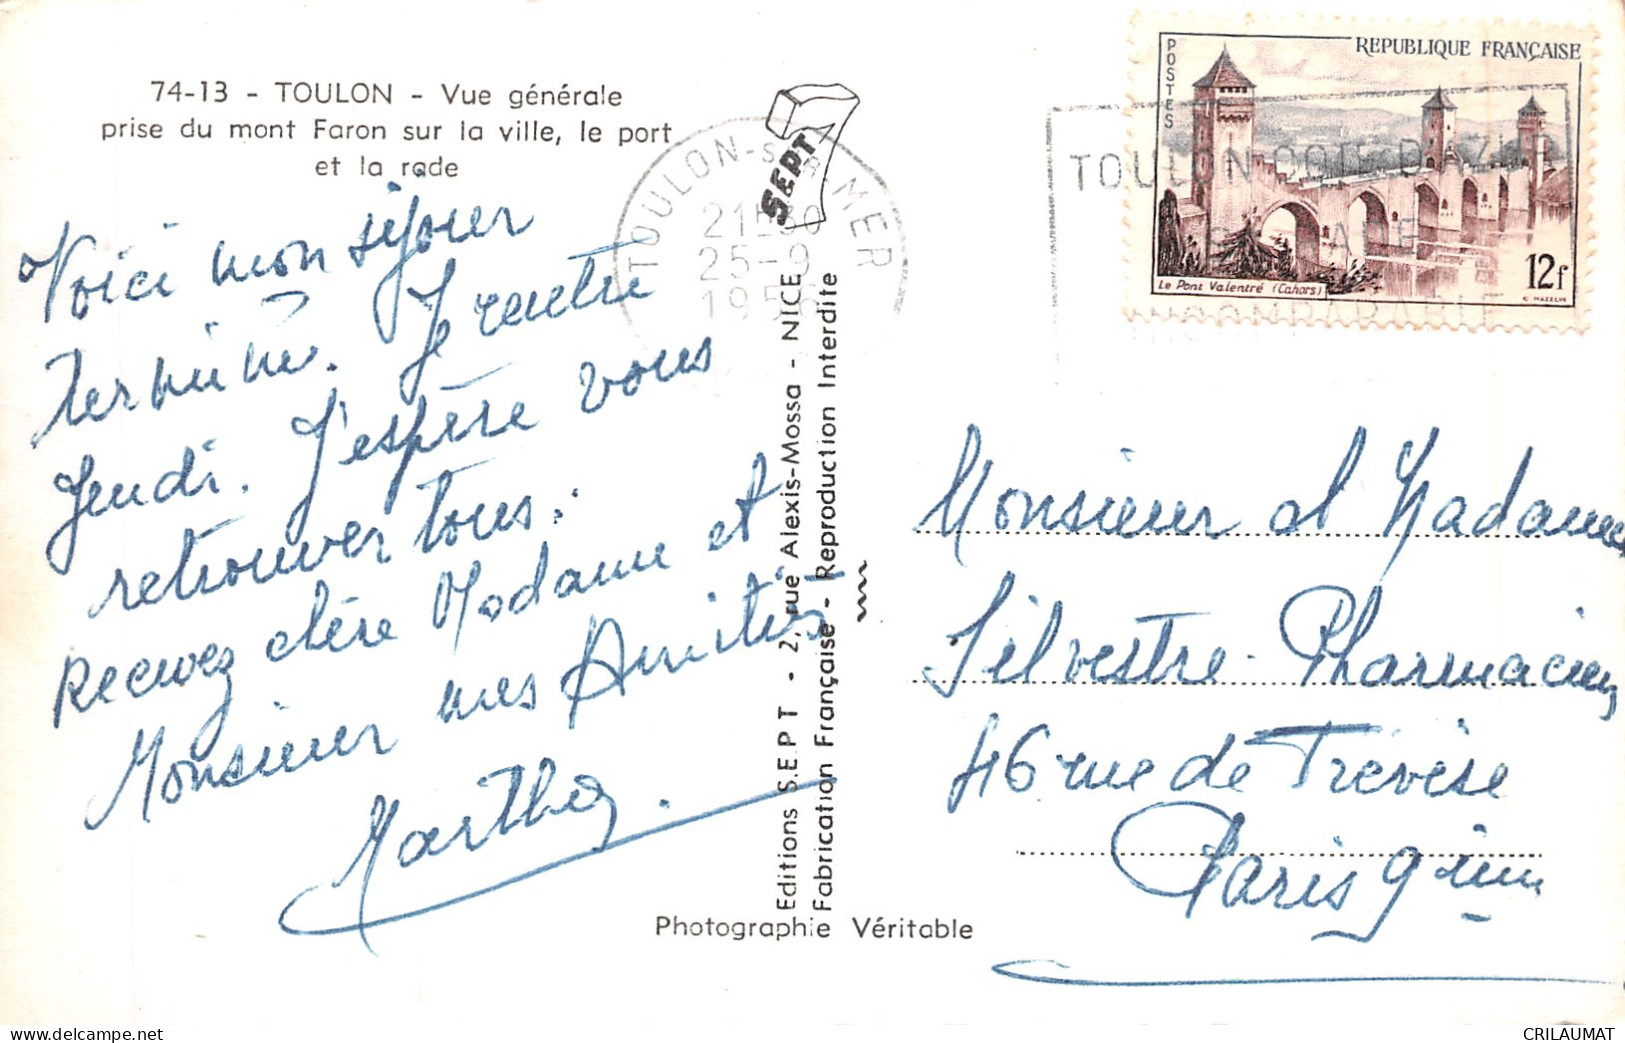 74-13 - TOULON - Vue générale
prise du mont Faron sur la ville, le port
et la rade
Voici mon séjour
terminé. Je rentre
Jeudi. J'espère vous
retrouver tous.
Recevez chère Madame et
Monsieur mes Amitiés
Marthe.
SEPT
TOULON-SUR MER
21H30
25-9
1956
Editions S.E.P.T - 2, rue Alexis-Mossa - NICE
Fabrication Française - Reproduction Interdite
Photographie Véritable
POSTES
REPUBLIQUE FRANÇAISE
Le Pont Valentré (Cahors)
12f
C. MAZELIN
TOULON COTE D'AZUR
INCOMPARABLE
Monsieur et Madame
Silvestre - Pharmacien
46 rue de Trévise
Paris 9ième
CRILAUMAT